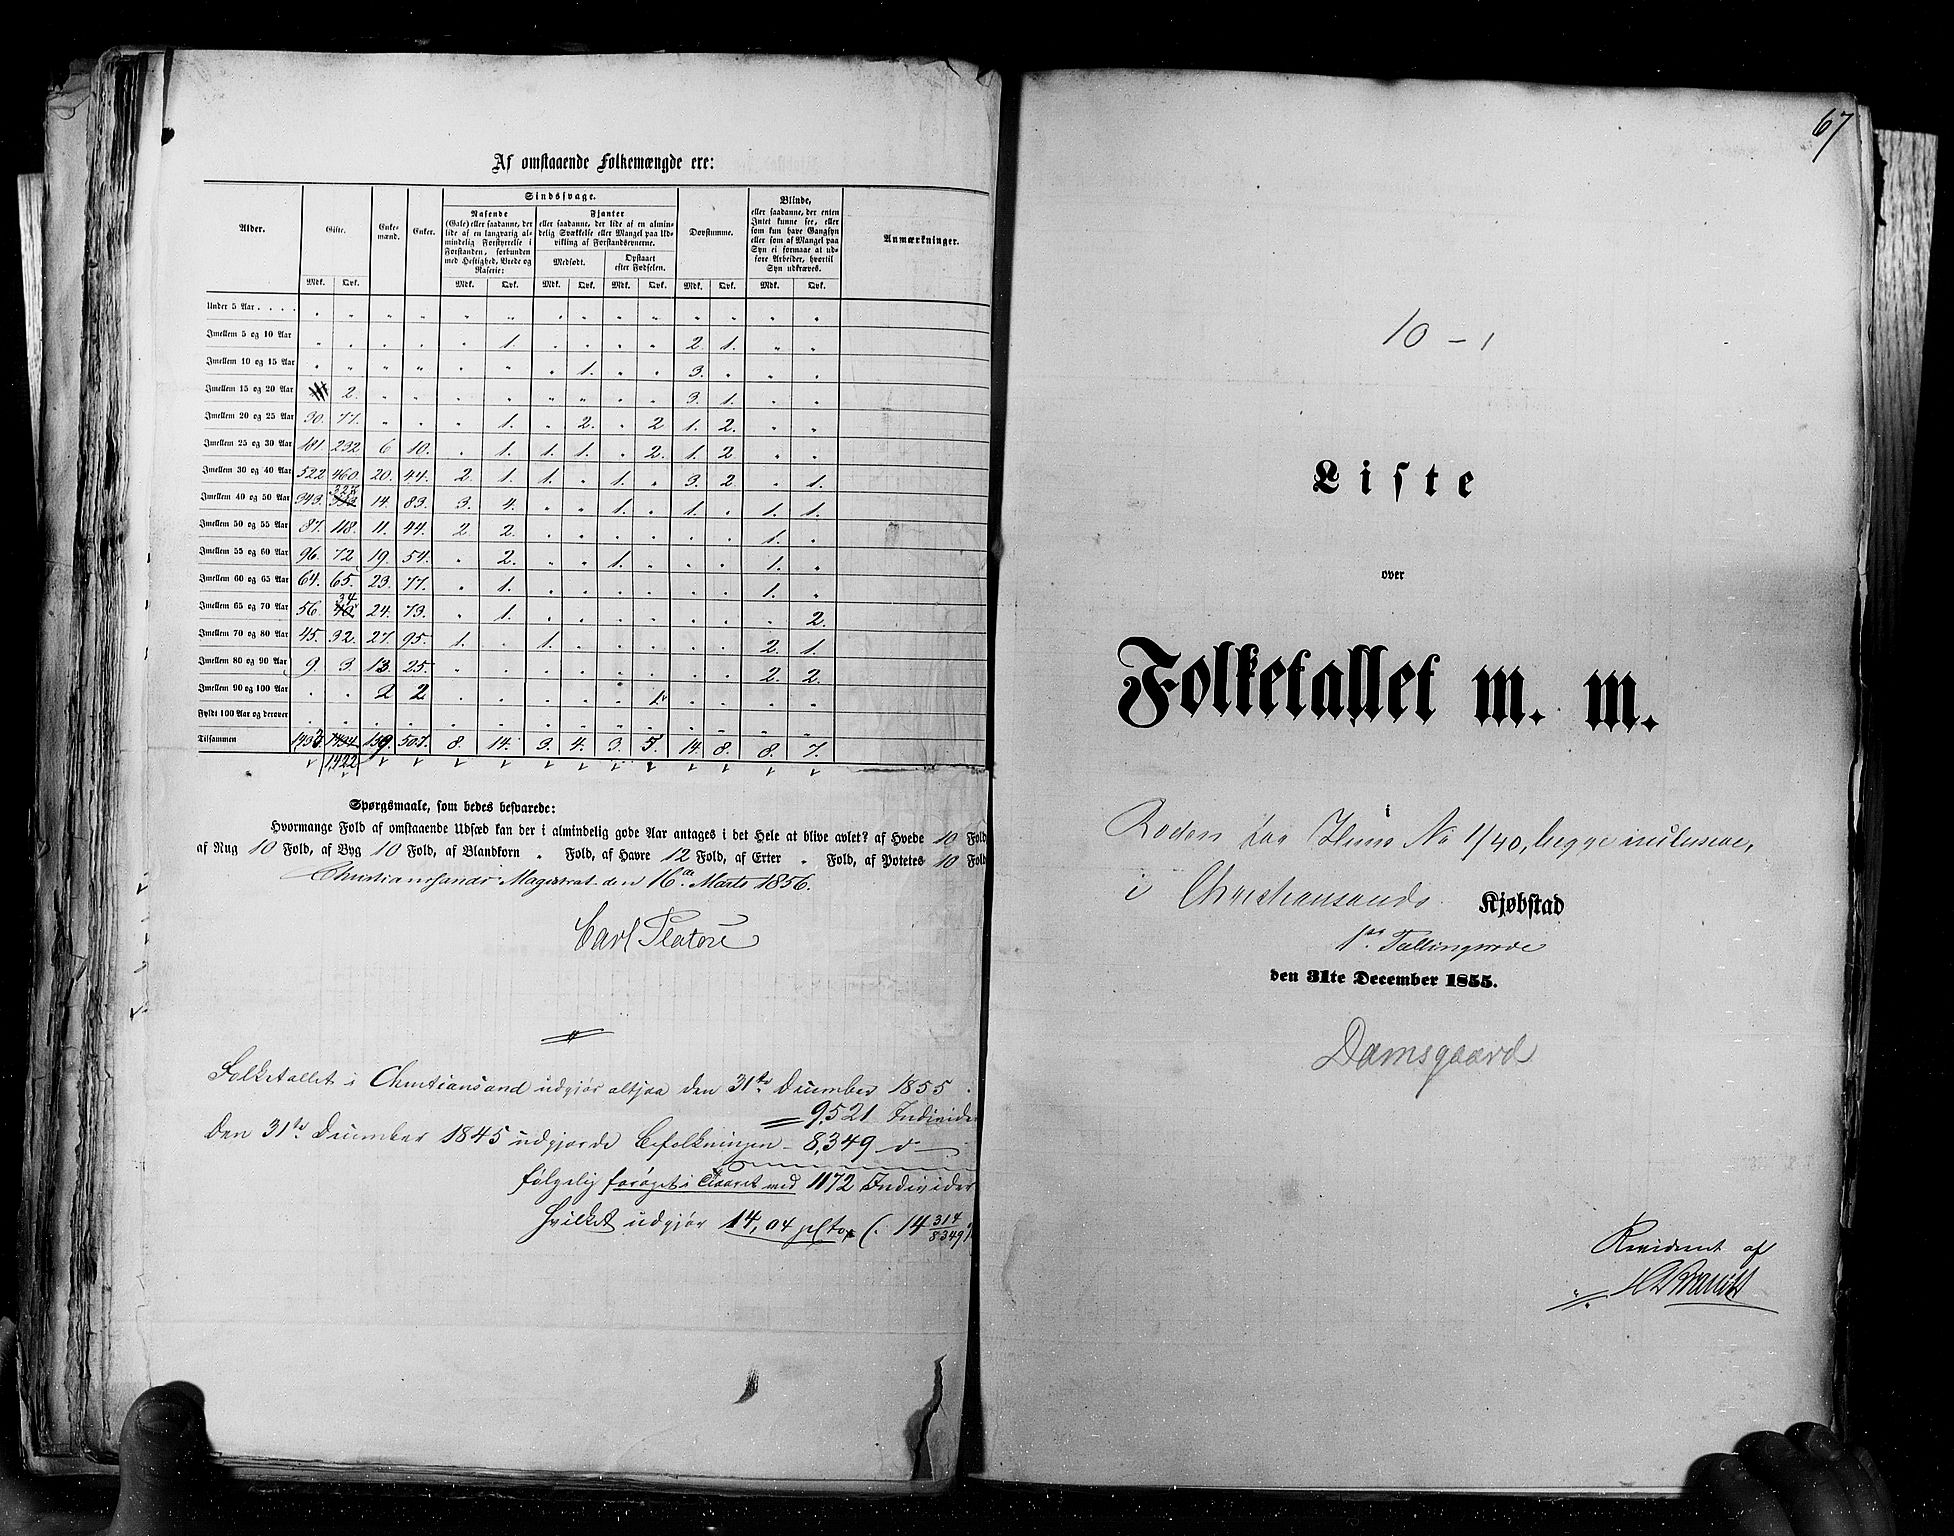 Af omstaaende Folkemængde ere:
Alder. Gifte. Enkemænd. Enker. Sindssvage. Døvstumme. Blinde, Anmærkninger.
Rasende (Gale) eller saadanne, der lide af en langvarig almindelig Forstyrrelse i Forstanden, forbunden med Heftighed, Vrede og Raserie:
Fjanter eller saadanne, der lide af en almindelig Svækkelse eller Mangel paa Udvikling af Forstandsevnerne.
Medfødt. Opstaaet efter Fødselen.
eller saadanne, der enten Intet kunne see, eller som kun have Gangsyn eller som af Mangel paa Syn ei formaae at udføre Arbeider, hvortil Syn udkræves.
Mdk. Qvk. Mdk. Qvk. Mdk. Qvk. Mdk. Qvk. Mdk. Qvk. Mdk. Qvk.
Under 5 Aar . . . . " " " " " " " " " " " " " "
Imellem 5 og 10 Aar " " " " " 1. " " " " 2. 1. " "
Imellem 10 og 15 Aar " " " " " " " 1. " " 3. " " "
Imellem 15 og 20 Aar 2. " " " " " " " " 3. 1. " "
Imellem 20 og 25 Aar 30. 77. " " " 1. " 2. " 2 1. 2. " "
Imellem 25 og 30 Aar 181. 232 6 10. " 1. 1. 1. " 2. 1. 2 " "
Imellem 30 og 40 Aar 522 460. 20. 44. 2. 1. 1. " 1. " 3. 2. " 1.
Imellem 40 og 50 Aar 343. 327 14. 83. 3. 4. " " 1. " 1. " 1. 1.
Imellem 50 og 55 Aar 87. 118. 11. 44. 2 2. " " " " " " 1. "
Imellem 55 og 60 Aar 96. 72. 19. 54. " 2. " " 1. " " " 1. "
Imellem 60 og 65 Aar 64. 65. 23. 77. " 1. " " " " " " 1. "
Imellem 65 og 70 Aar 56. 34 24. 73. " 1. " " " " " " " 2.
Imellem 70 og 80 Aar 45. 32. 27. 95. 1. " 1. " " " " " 2. 1.
Imellem 80 og 90 Aar 9. 3. 13. 25. " " " " " " " " 2. 2.
Imellem 90 og 100 Aar " " 2 2. " " " " " 1. " " " "
Fyldt 100 Aar og derover " " " " " " " " " " " " " "
Tilsammen 1433 1434 159. 507. 8. 14. 3. 4. 3. 5. 14. 8. 8. 7.
1422
Spørgsmaale, som bedes besvarede:
Hvormange Fold af omstaaende Udsæd kan der i almindelig gode Aar antages i det Hele at blive avlet? af Hvede 10 Fold
af Rug 10 Fold, af Byg 10 Fold, af Blandkorn " Fold, af Havre 12 Fold, af Erter " Fold, af Potetes 10 Fold
Christianssands Magistrat den 16de Marts 1856.
Carl Platou
Folketallet i Christiansand udgjør altsaa den 31te December 1855
= 9521 Individer
Den 31te December 1845 udgjorde Befolkningen - 8,349 d—
følgelig forøget i Tiaaret med 1172 Individer
hvilket udgjør 14,04 pCto (: 14 314/8349 :)
67
10 - 1
Liste
over
Folketallet m. m.
i
Roden fra Huus No 1/40, begge inclusive,
i Christianssands Kjøbstad
1ste Tællingsrode
den 31te December 1855.
Damsgaard
Revideret af